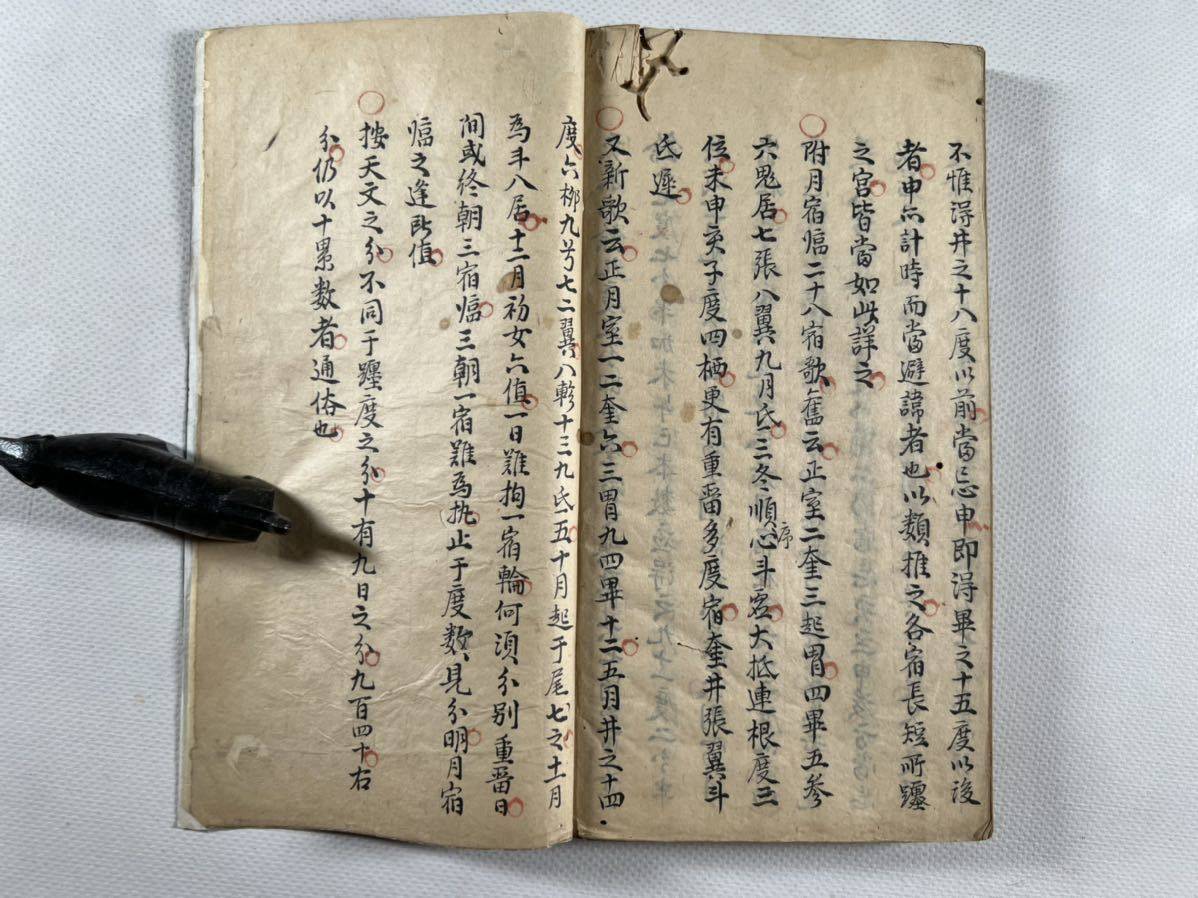 不惟得井之十八度以前當忌申即得畢之十五度以後
者申亦計時而當避諱者也以類推之各宿長短所躔
之宮皆當如此詳之
附月宿臨二十八宿歌舊云正室二奎三起胃四畢五參
六鬼居七張八翼九月氐三冬順心斗虛大抵連根度三
序
位未申亥子度四栖更有重畱多度宿奎井張翼斗
氐遲
又新歌云正月室一二奎六三胃九四畢十二五月井之十四
度六栁九兮七二翼八軫十三九氐五十月起于尾七之十一月
為斗八居十二月初女六值一日難拘一宿輪何須分別重畱日
间或终朝三宿臨三朝一宿難為执止于度数見分明月宿
臨之逢趴值
按天文之分不同于躔度之分十有九日之分九百四十右
分仍以十累数者通俗也